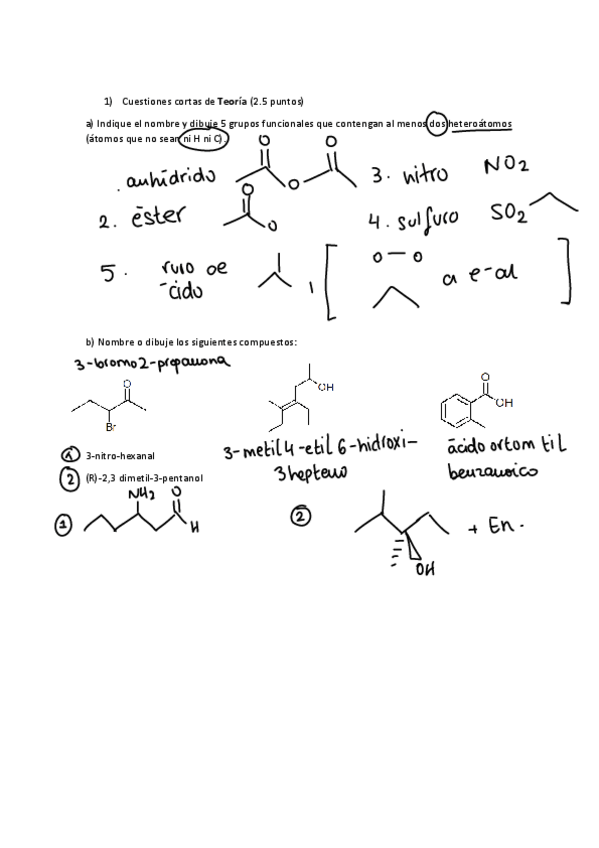 1) Cuestiones cortas de Teoría (2.5 puntos)
a) Indique el nombre y dibuje 5 grupos funcionales que contengan al menos dos heteroátomos
(átomos que no sean ni H ni C).
anhídrido
O O
O
3. nitro NO2
2. éster
O
O
4. sulfuro SO2
5.
O — O
a e-al
b) Nombre o dibuje los siguientes compuestos:
3-bromo2-propanona
O
Br
OH
O
OH
3-metil4-etil6-hidroxi-
3hepteno
ácido ortom til
benzanoico
1 3-nitro-hexanal
2 (R)-2,3 dimetil-3-pentanol
1
NH2 O
H
2
OH
+ En.